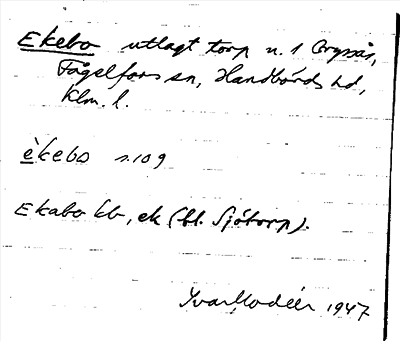 Ekebo utlagt torp u. 1 Bryssås,
Fågelfors sn, Handbörds hd,
Klm. l.
èkebo s. 109
Ekabo kb, ek (bl. Sjötorp).
Yvar Modéer 1947